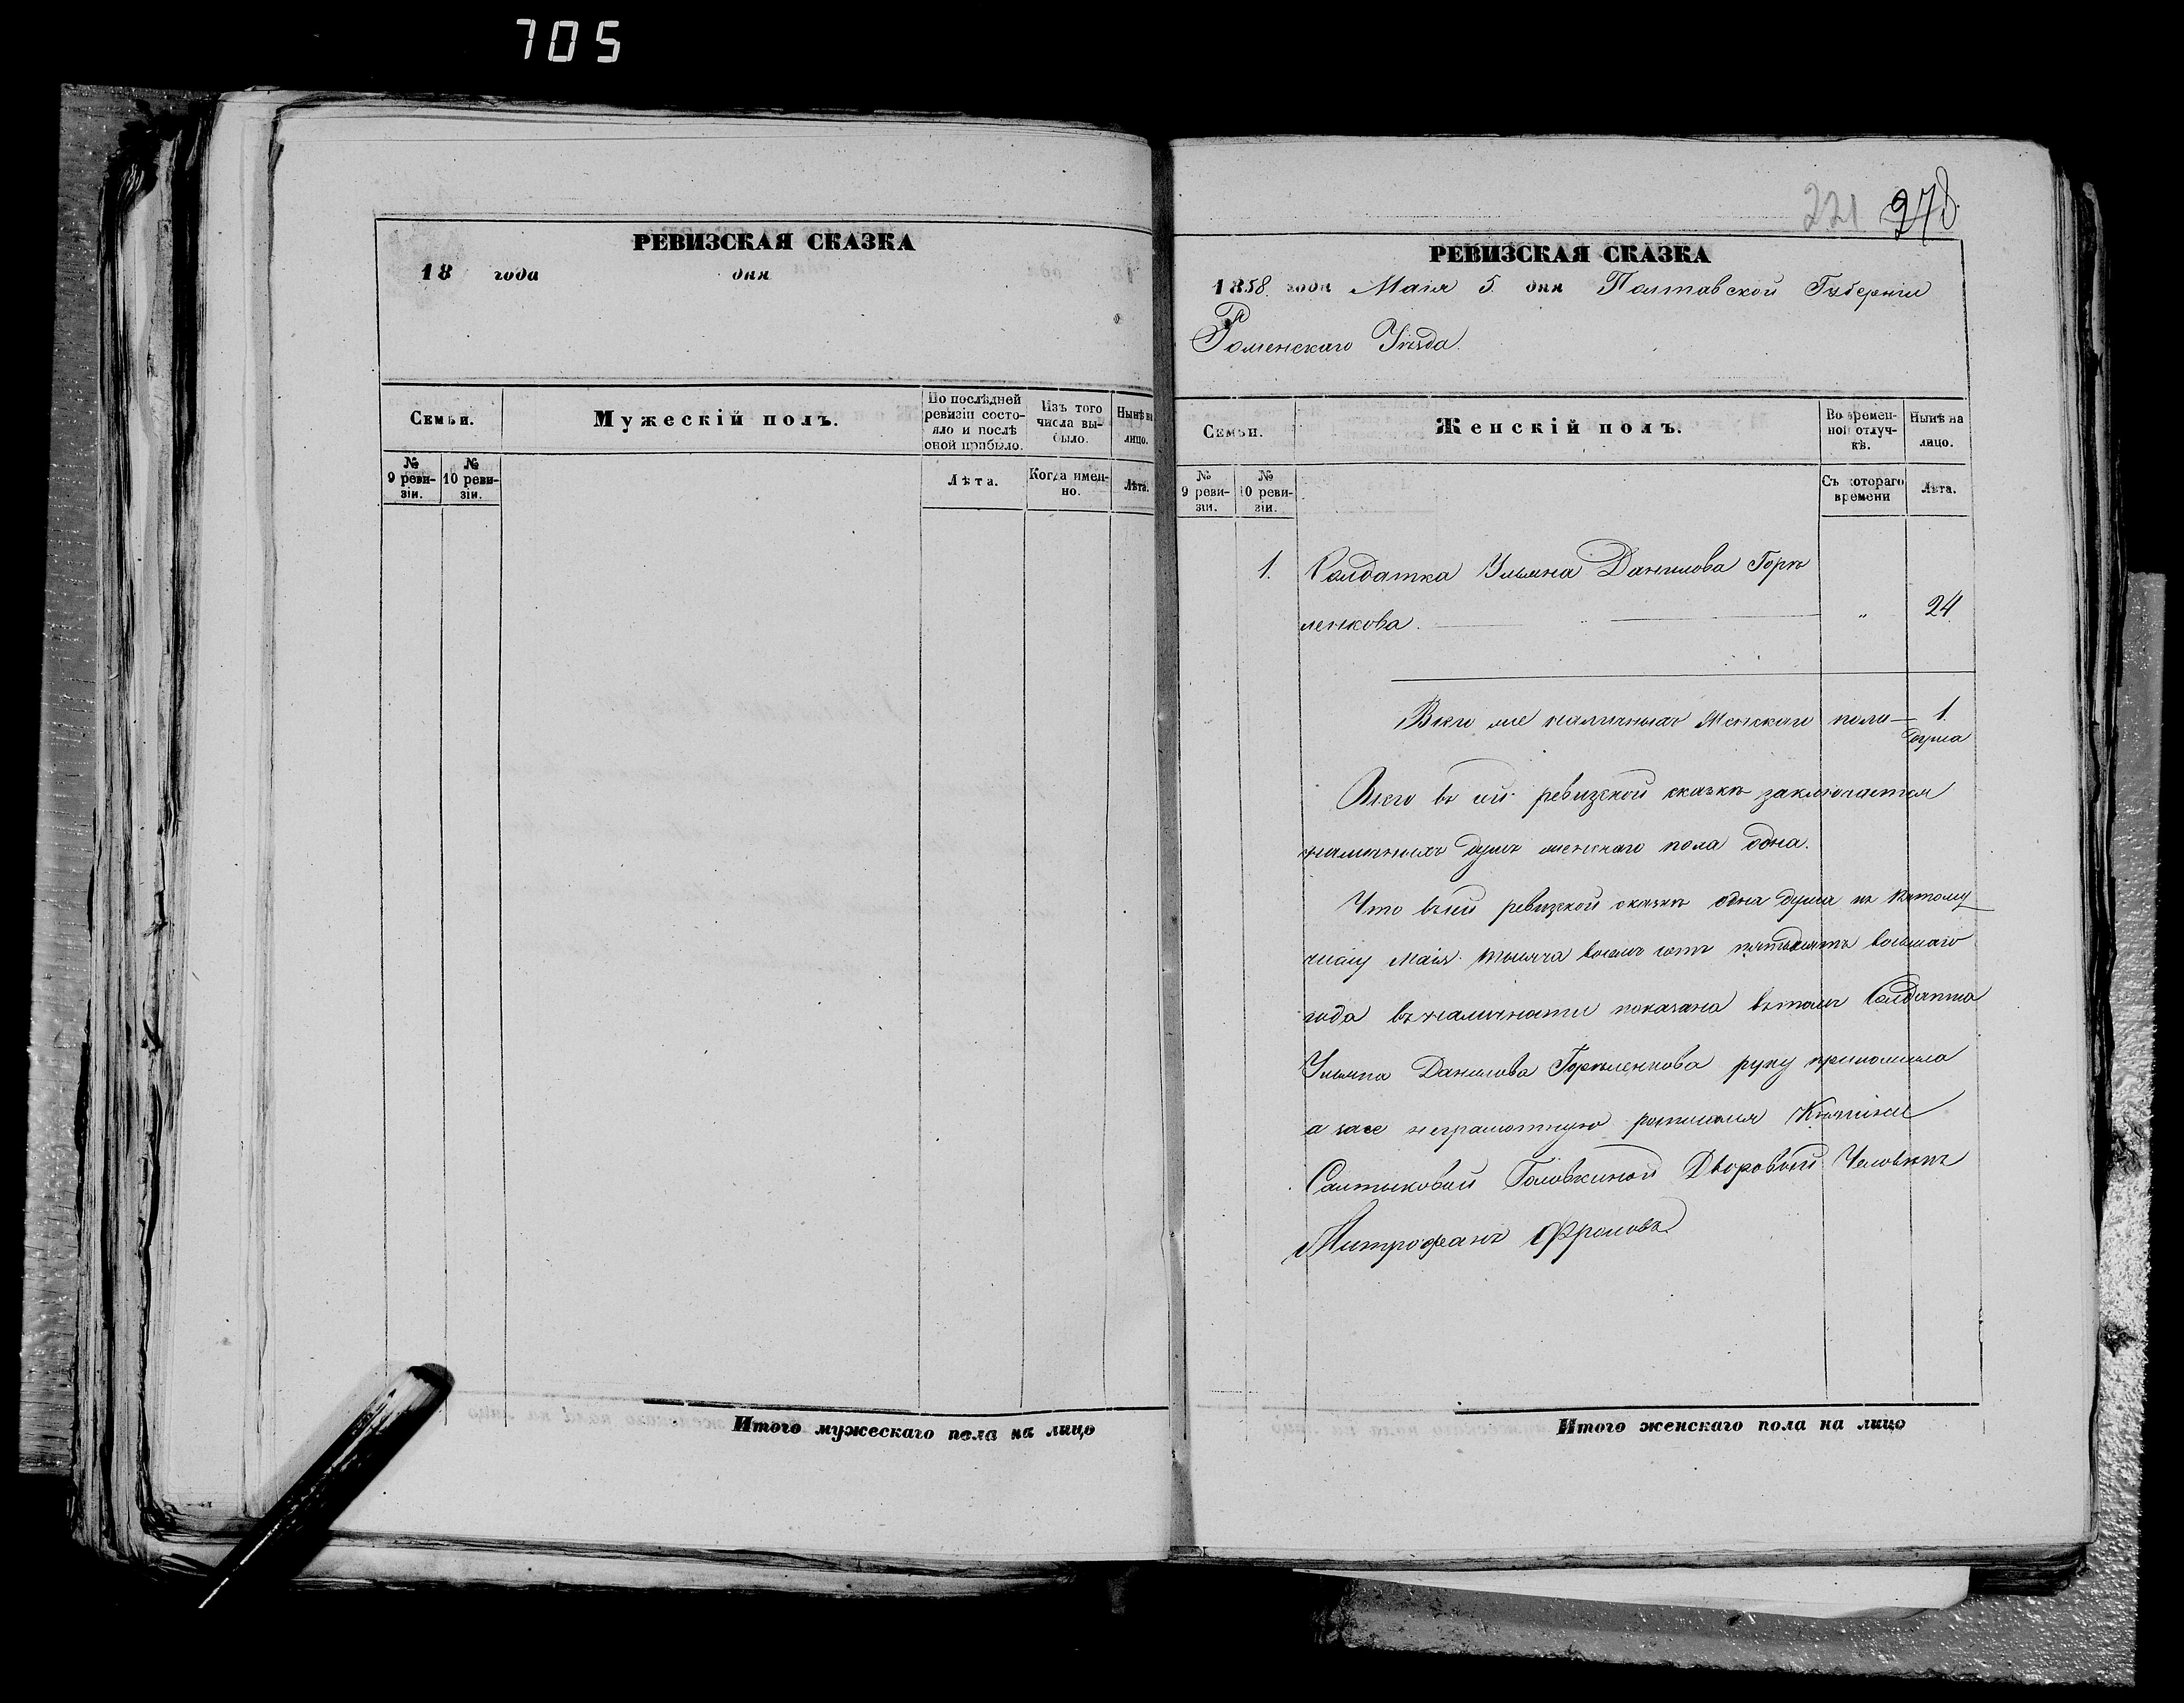 705
РЕВИЗСКАЯ СКАЗКА
18 года дня
Семьи.
Мужескій полъ.
По послѣдней ревизіи состояло и послѣ оной прибыло.
Изъ того числа выбыло.
Нынѣ на лицо.
№ 9 ревизіи.
№ 10 ревизіи.
Лѣта.
Когда именно.
Лѣта.
Итого мужескаго пола на лицо
221 278
РЕВИЗСКАЯ СКАЗКА
1858. года Маія 5. дня Полтавской Губерніи
Роменскаго Уѣзда.
Семьи.
Женскій полъ.
Во временной отлучкѣ.
Нынѣ на лицо.
№ 9 ревизіи.
№ 10 ревизіи.
Съ котораго времени
Лѣта.
1. Солдатка Ульяна Данилова Горѣ
ленкова. „ 24.
Всего же наличныхъ Женскаго пола — 1.
душа
Всего въ сей ревизской сказкѣ заключается
наличныхъ душъ женскаго пола одна.
Что въ сей ревизской сказкѣ одна душа къ пятому
числу Маія тысяча восемь сотъ пятьдесятъ восьмаго
года въ наличности показана въ томъ Солдатка
Ульяна Данилова Горѣленкова руку приложила
а за нее неграмотную росписался Княгини
Салтыковой Головкиной Дворовый Человѣкъ
Митрофанъ Фроловъ
Итого женскаго пола на лицо